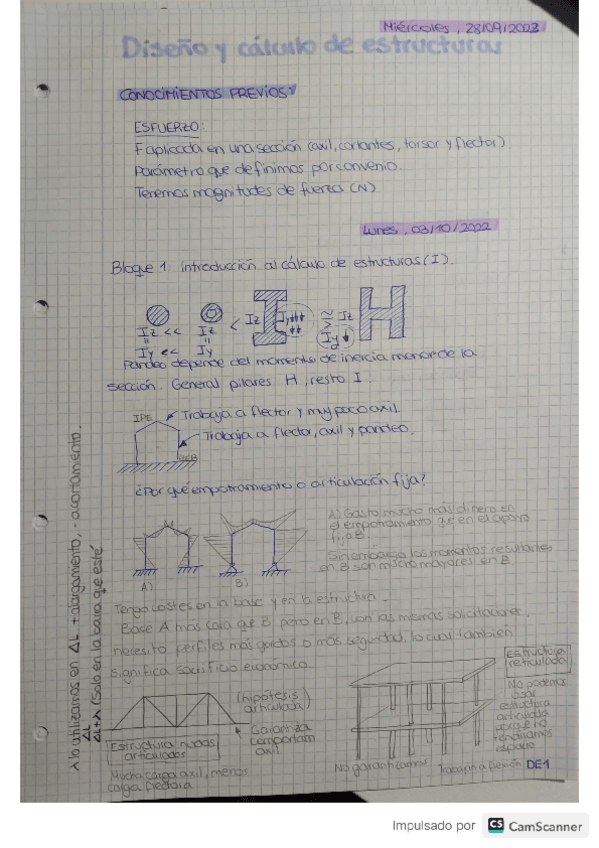 Miércoles, 28/09/2022
Diseño y cálculo de estructuras
CONOCIMIENTOS PREVIOS
ESFUERZO:
F aplicada en una sección (axil, cortantes, torsor y flector)
Parámetro que definimos por convenio.
Tenemos magnitudes de fuerza (N)
Lunes, 03/10/2022
Bloque 1. Introducción al cálculo de estructuras (I).
Iz << Iz < Iz Iy Iz
Iy << Iy Iy
Pandeo depende del momento de inercia menor de la
sección. General pilares H, resto I.
IPE Trabaja a flector y muy poco axil.
Trabaja a flector, axil y pandeo.
HEB
¿Por qué empotramiento o articulación fija?
A) Gasto mucho más dinero en
el empotramiento que en el apoyo
fijo B
Sin embargo los momentos resultantes
en B son mucho mayores en B.
A) B)
Tengo costes en la base y en la estructura.
Base A más cara que B pero en B, con las mismas solicitaciones,
necesito perfiles más gordos o más seguridad, lo cual también
significa sacrificio económico.
(hipótesis
articulada)
Garantiza
comportam.
axil
Estructura nudos
articulados
Mucha carga axil, menos
carga flectora
Estructura
reticulada
No podemos
usar
estructura
articulada
porque no
tendríamos
espacio
No garantizamos Trabajan a flexión DE1
λ lo utilizamos en ΔL + alargamiento, - acortamiento.
ΔL
ΔL+λ (Solo en la barra que esté
Impulsado por CS CamScanner